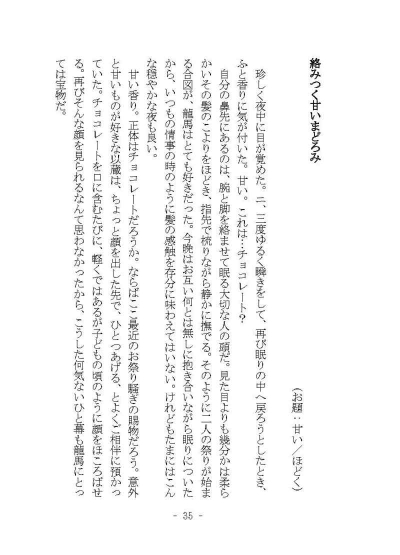 絡みつく甘いまどろみ
（お題：甘い／ほどく）
珍しく夜中に目が覚めた。二、三度ゆるく瞬きをして、再び眠りの中へ戻ろうとしたとき、
ふと香りに気が付いた。甘い。これは…チョコレート？
自分の鼻先にあるのは、腕と脚を絡ませて眠る大切な人の頭だ。見た目よりも幾分かは柔ら
かいその髪のこよりをほどき、指先で梳りながら静かに撫でる。そのように二人の祭りが始ま
る合図が、龍馬はとても好きだった。今晩はお互い何とは無しに抱き合いながら眠りについた
から、いつもの情事の時のように髪の感触を存分に味わえてはいない。けれどもたまにはこん
な穏やかな夜も良い。
甘い香り。正体はチョコレートだろうか。ならばここ最近のお祭り騒ぎの賜物だろう。意外
と甘いものが好きな以蔵は、ちょっと顔を出した先で、ひとつあげる、とよくご相伴に預かっ
ていた。チョコレートを口に含むたびに、軽くではあるが子どもの頃のように顔をほころばせ
る。再びそんな顔を見られるなんて思わなかったから、こうした何気ないひと幕も龍馬にとっ
ては宝物だ。
- 35 -